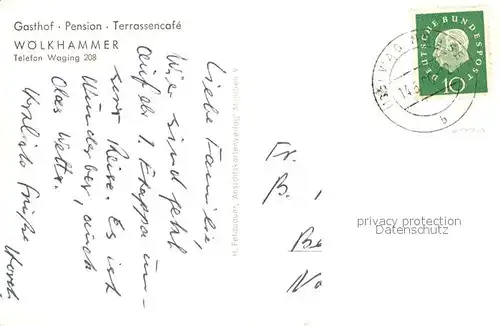 Gasthof · Pension · Terrassencafé
WÖLKHAMMER
Telefon Waging 208
Liebe Familie,
Wir sind jetzt
auf der 1. Etappe un-
serer Reise. Es ist
Wunderbar, auch
das Wetter.
Herzliche Grüße
H. Fetzpauer, Ansichtskartenverlag, München 9
DEUTSCHE BUNDESPOST
10
WAG
14.
b
Fr.
B.
Be
No
privacy protection
Datenschutz